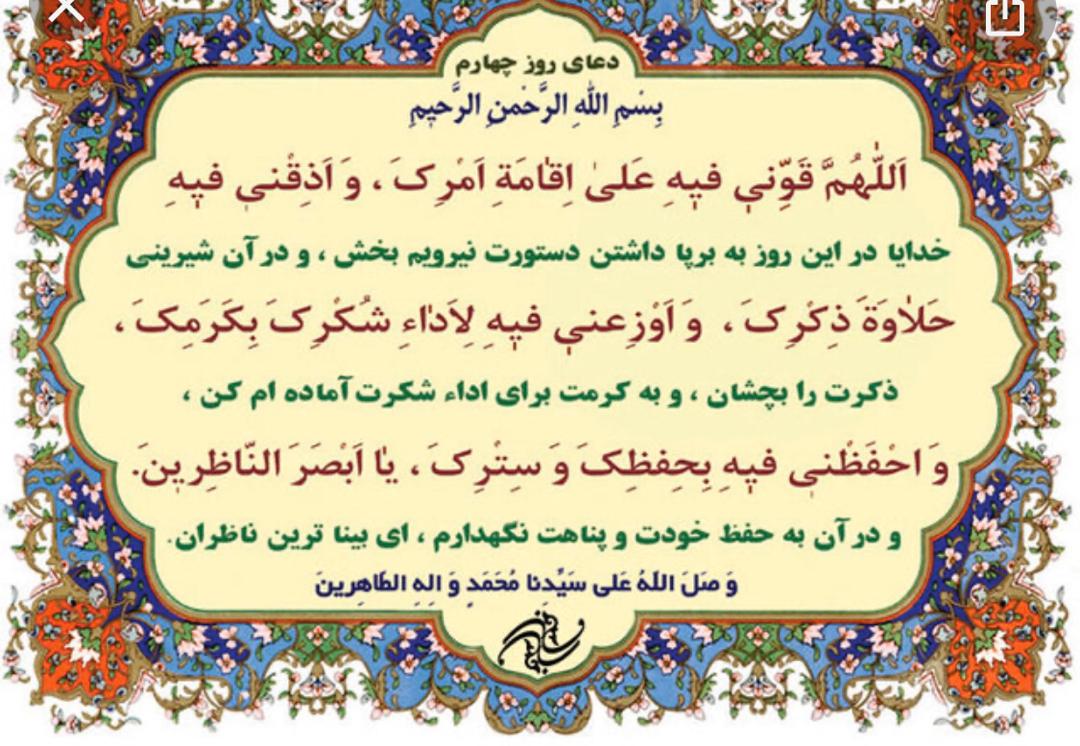 دعای روز چهارم
بِسْمِ اللهِ الرَّحْمنِ الرَّحیمِ
اَللّهُمَّ قَوِّنی فیهِ عَلیٰ اِقامَةِ اَمْرِکَ ، وَ اَذِقْنی فیهِ
خدایا در این روز به برپا داشتن دستورت نیرویم بخش ، و در آن شیرینی
حَلاوَةَ ذِکْرِکَ ، وَ اَوْزِعنی فیهِ لِاَداءِ شُکْرِکَ بِکَرَمِکَ ،
ذکرت را بچشان ، و به کرمت برای اداء شکرت آماده ام کن ،
وَ احْفَظْنی فیهِ بِحِفظِکَ وَ سِتْرِکَ ، یا اَبْصَرَ النّاظِرینَ.
و در آن به حفظ خودت و پناهت نگهدارم ، ای بینا ترین ناظران.
وَ صَلَ اللهُ عَلی سَیِّدِنا مُحَمَدٍ وَ الِهِ الطّاهِرینَ